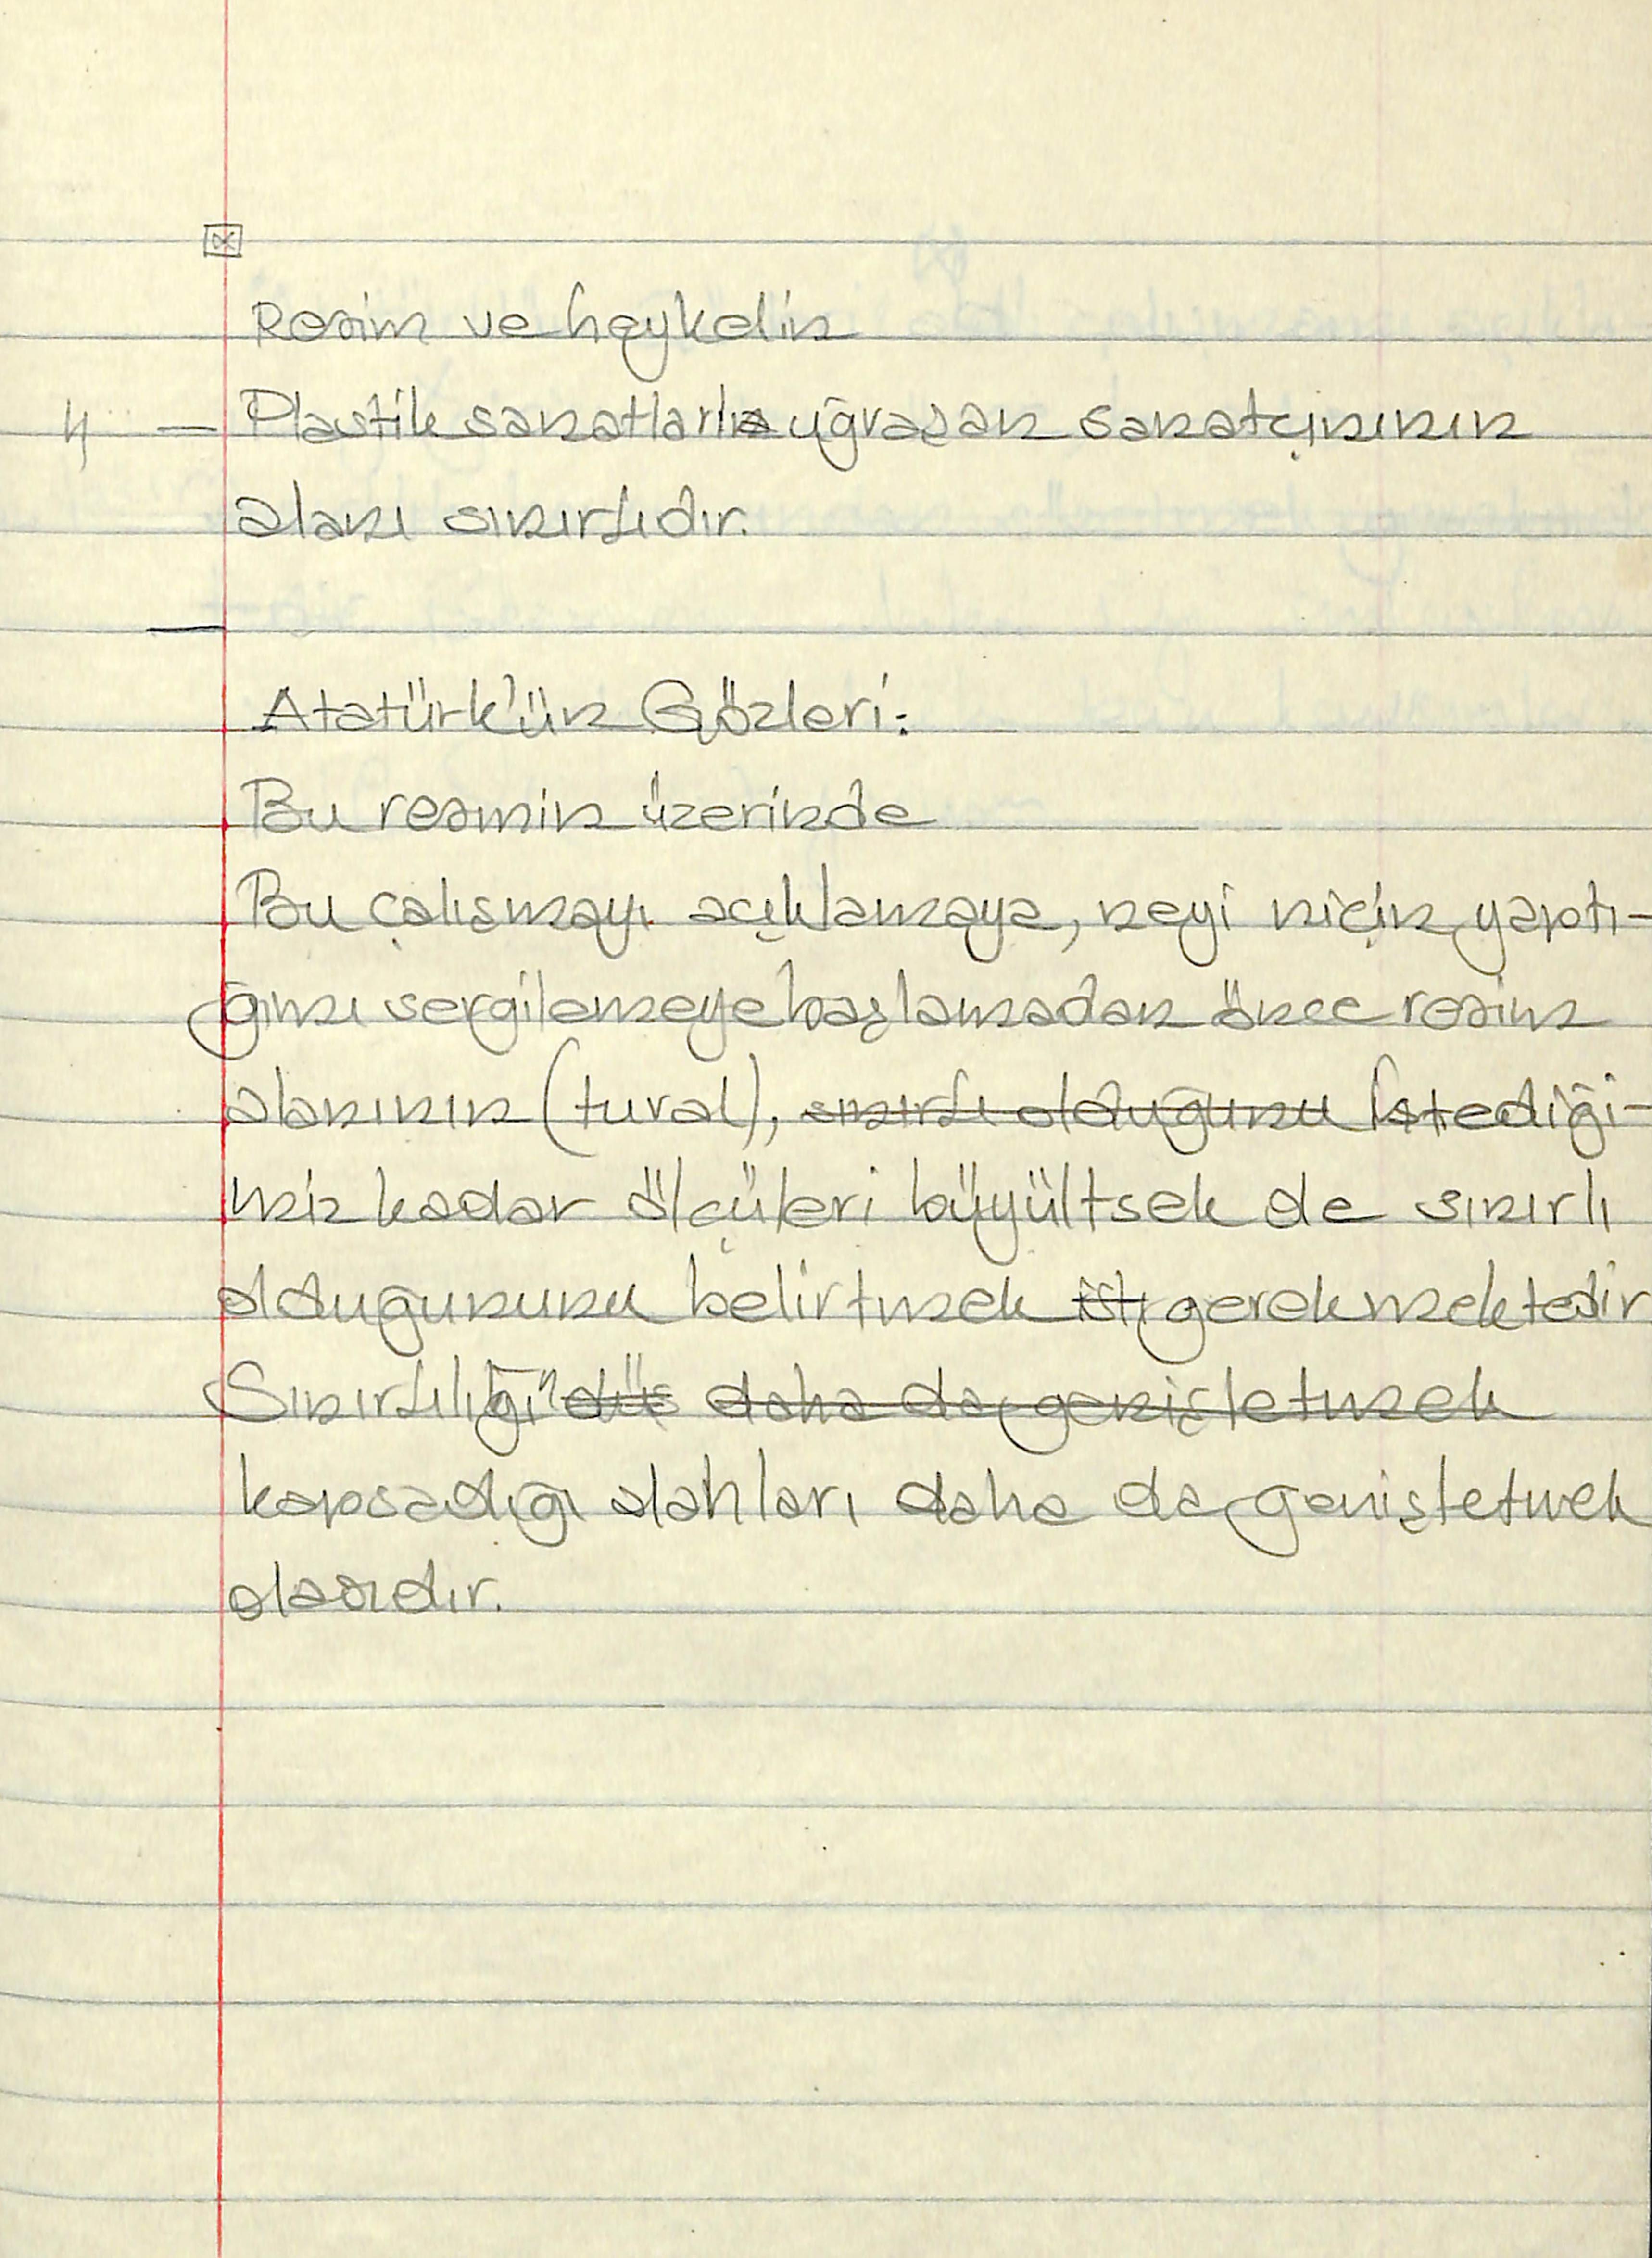 Resim ve heykelin
4 — Plastik sanatlarla uğraşan sanatçınının
alanı sınırlıdır.
—
Atatürk'ün Gözleri:
Bu resmin üzerinde
Bu çalışmayı açıklamaya, neyi niçin yaptı-
ğımı sergilemeye başlamadan önce resim
alanının (tuval), sınırlı olduğunu İstediği-
miz kadar ölçüleri büyültsek de sınırlı
olduğununu belirtmek isti gerekmektedir
Sınırlılığı"n düş daha da genişletmek
kapsadığı alanları daha da genişletmek
olasıdır.